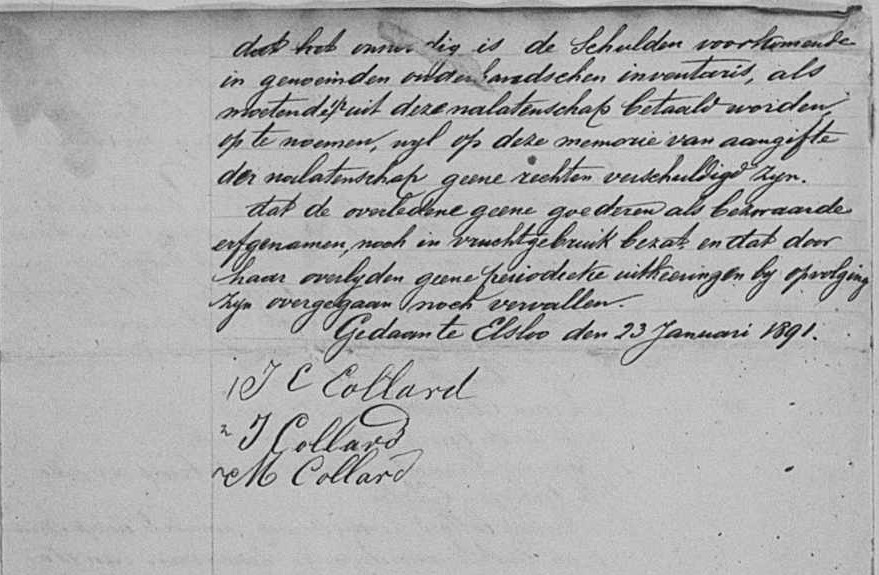 dat het onnoodig is de Schulden voorkomende
in genoemden onderhandschen inventaris, als
moetende uit deze nalatenschap betaald worden,
op te noemen, wyl op deze memorie van aangifte
der nalatenschap geene rechten verschuldigd zyn.
dat de overledene geene goederen als bezwaarde
erfgenamen, noch in vruchtgebruik bezat en dat door
haar overlyden geene periodieke uitkeeringen by opvolging
zyn overgegaan noch vervallen.
Gedaan te Elsloo den 23 Januari 1891.
1 J C Collard
2 J Collard
M Collard